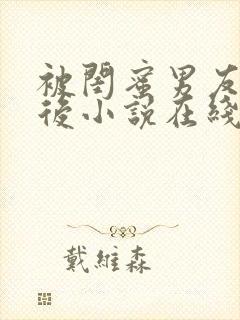 被閏蜜男友
後小說在綫
戴維森